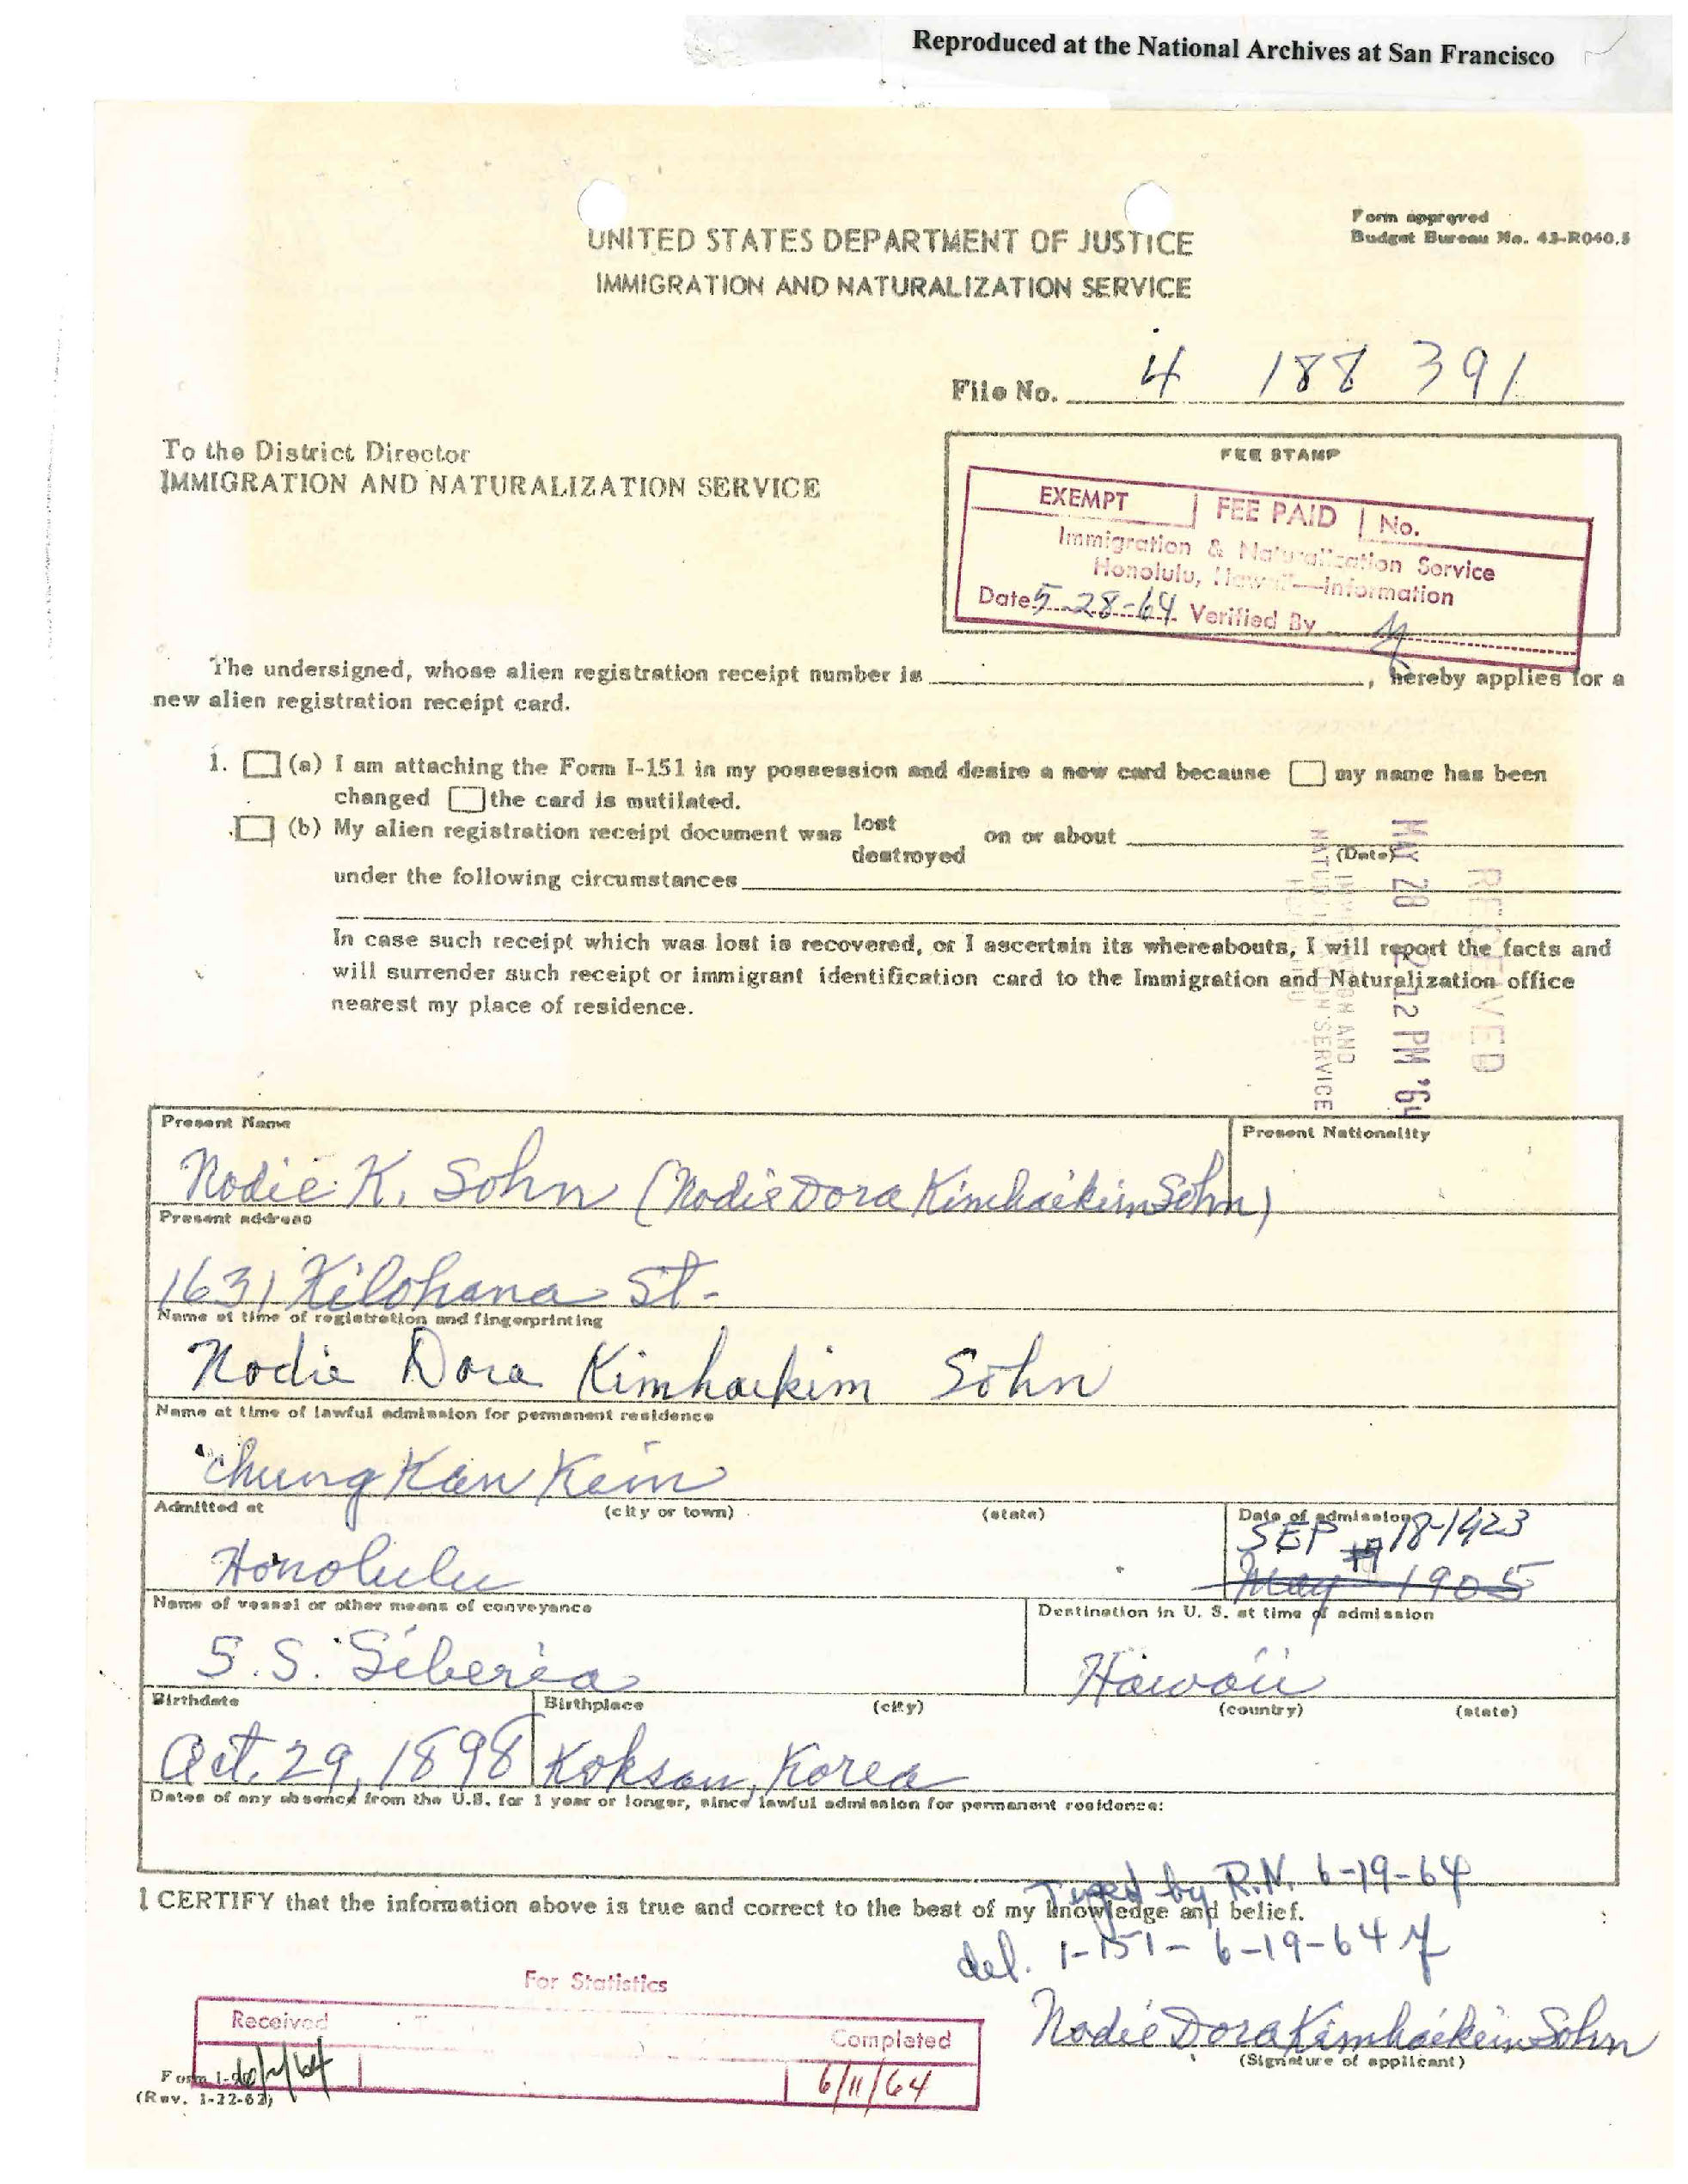 Reproduced at the National Archives at San Francisco
Form approved
Budget Bureau No. 43-R040.5
UNITED STATES DEPARTMENT OF JUSTICE
IMMIGRATION AND NATURALIZATION SERVICE
File No. 4 188 391
To the District Director
IMMIGRATION AND NATURALIZATION SERVICE
FEE STAMP
EXEMPT FEE PAID No.
Immigration & Naturalization Service
Honolulu, Hawaii—Information
Date 5-28-64 Verified By
The undersigned, whose alien registration receipt number is , hereby applies for a
new alien registration receipt card.
1. (a) I am attaching the Form I-151 in my possession and desire a new card because my name has been
changed the card is mutilated.
(b) My alien registration receipt document was lost destroyed on or about
(Date)
under the following circumstances
In case such receipt which was lost is recovered, or I ascertain its whereabouts, I will report the facts and
will surrender such receipt or immigrant identification card to the Immigration and Naturalization office
nearest my place of residence.
RECEIVED
MAY 28 2 12 PM '64
IMMIGRATION AND
NATURALIZATION SERVICE
Present Name
Present Nationality
Nodie K. Sohn (Nodie Dora Kimhaikim Sohn)
Present address
1631 Kilohana St.
Name at time of registration and fingerprinting
Nodie Dora Kimhaikim Sohn
Name at time of lawful admission for permanent residence
Chung Kan Kein
Admitted at (city or town) (state) Date of admission
SEP 18-1923
Honolulu May 1905
Name of vessel or other means of conveyance
Destination in U. S. at time of admission
S.S. Siberia Hawaii
Birthdate Birthplace (city) (country) (state)
Oct. 29, 1898 Koksan, Korea
Dates of any absence from the U.S. for 1 year or longer, since lawful admission for permanent residence:
Typed by R.N. 6-19-64
I CERTIFY that the information above is true and correct to the best of my knowledge and belief.
del. 1-151- 6-19-64
For Statistics
Received Completed
6/11/64
Nodie Dora Kimhaikim Sohn
(Signature of applicant)
Form
(Rev. 1-22-62)